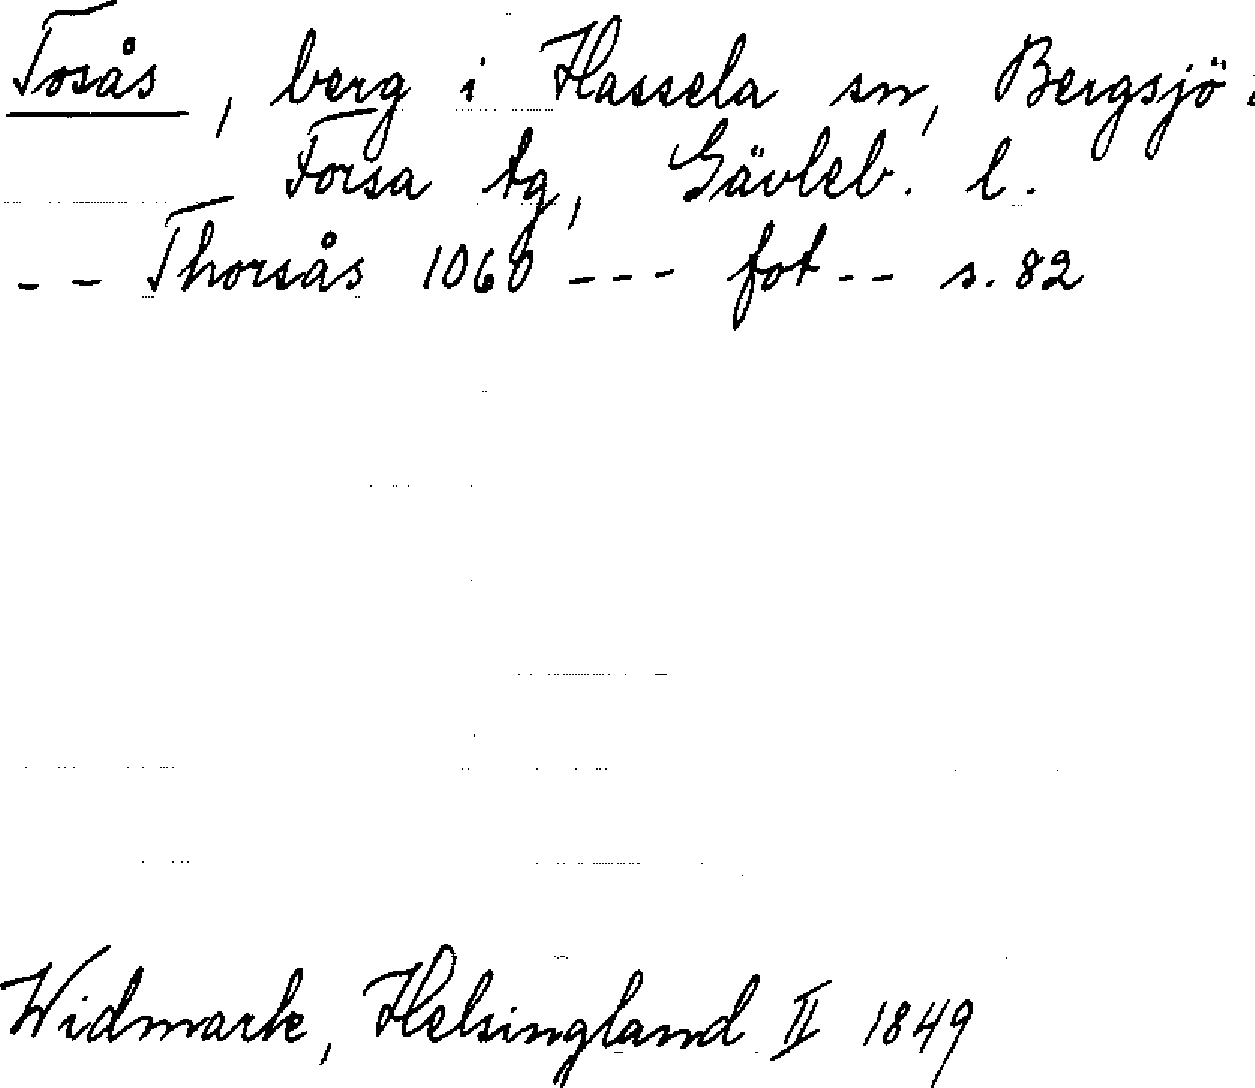 Tosås, berg i Hassela sn, Bergsjö
Forsa tg, Gävleb. l.
-- Thorsås 1060 --- fot -- s. 82
Widmark, Helsingland II 1849